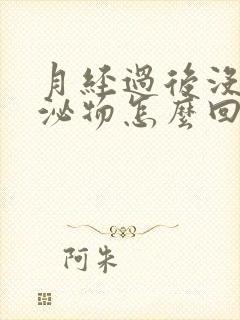 月經過後沒
泌物怎麼回
阿朱